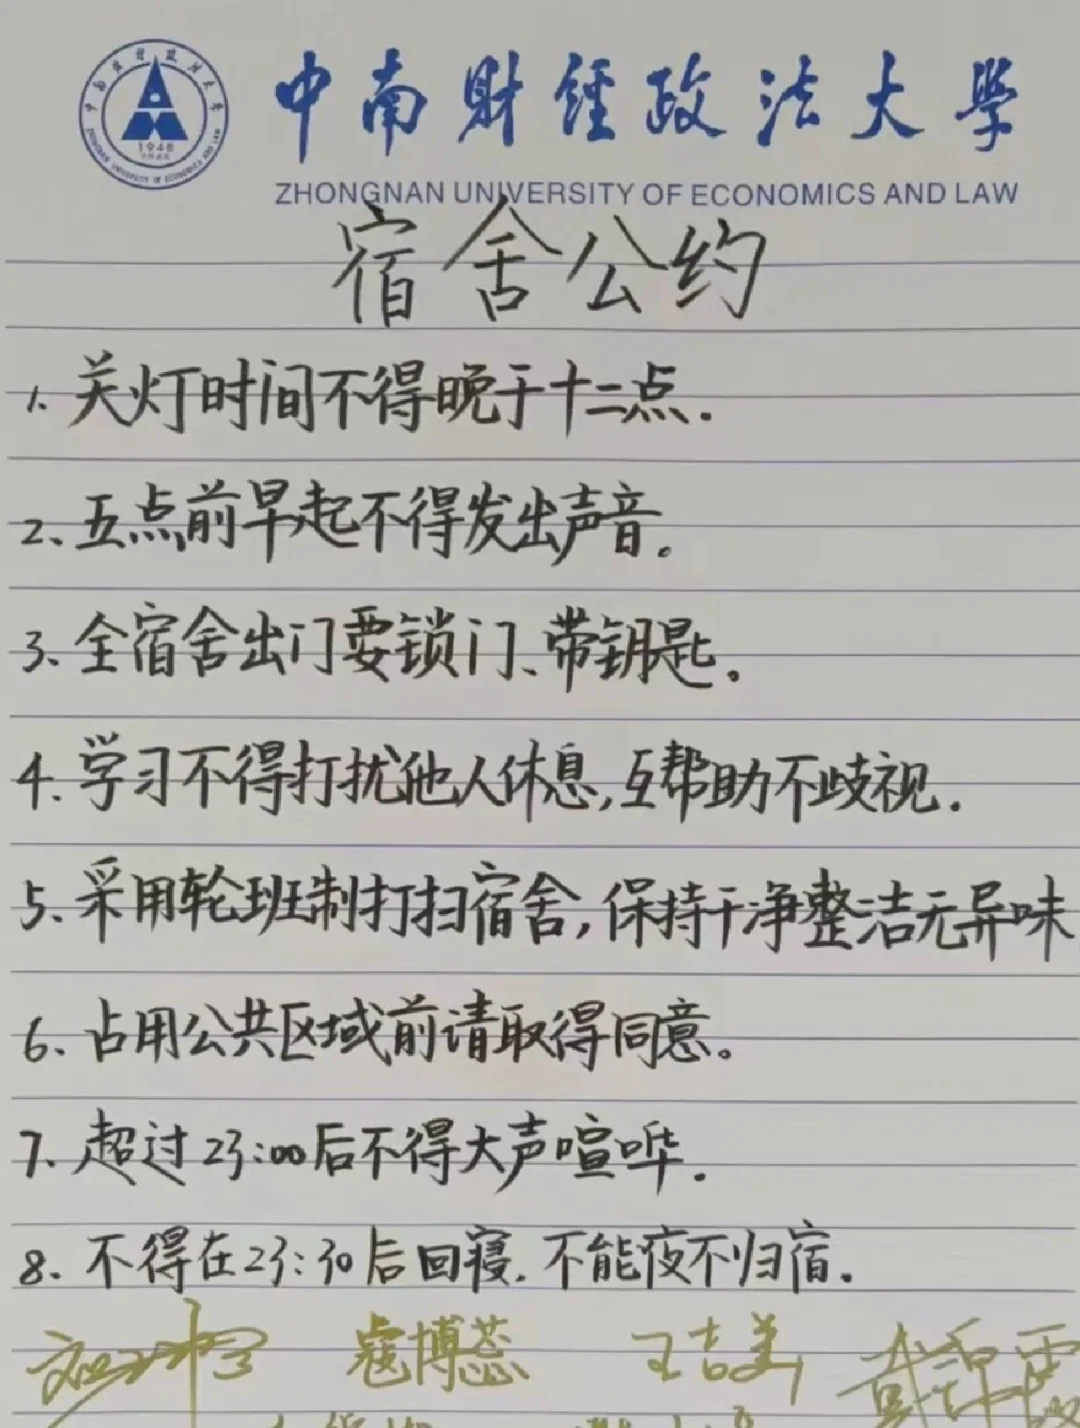 中南财经政法大学
ZHONGNAN UNIVERSITY OF ECONOMICS AND LAW
1948
宿舍公约
1. 关灯时间不得晚于十二点.
2、五点前早起不得发出声音。
3、全宿舍出门要锁门、带钥匙。
4. 学习不得打扰他人休息,互帮助不歧视.
5. 采用轮班制打扫宿舍,保持干净整洁无异味
6、占用公共区域前请取得同意。
7. 超过23:00后不得大声喧哗.
8. 不得在23:30后回寝. 不能夜不归宿.
寇博蕊 王吉美